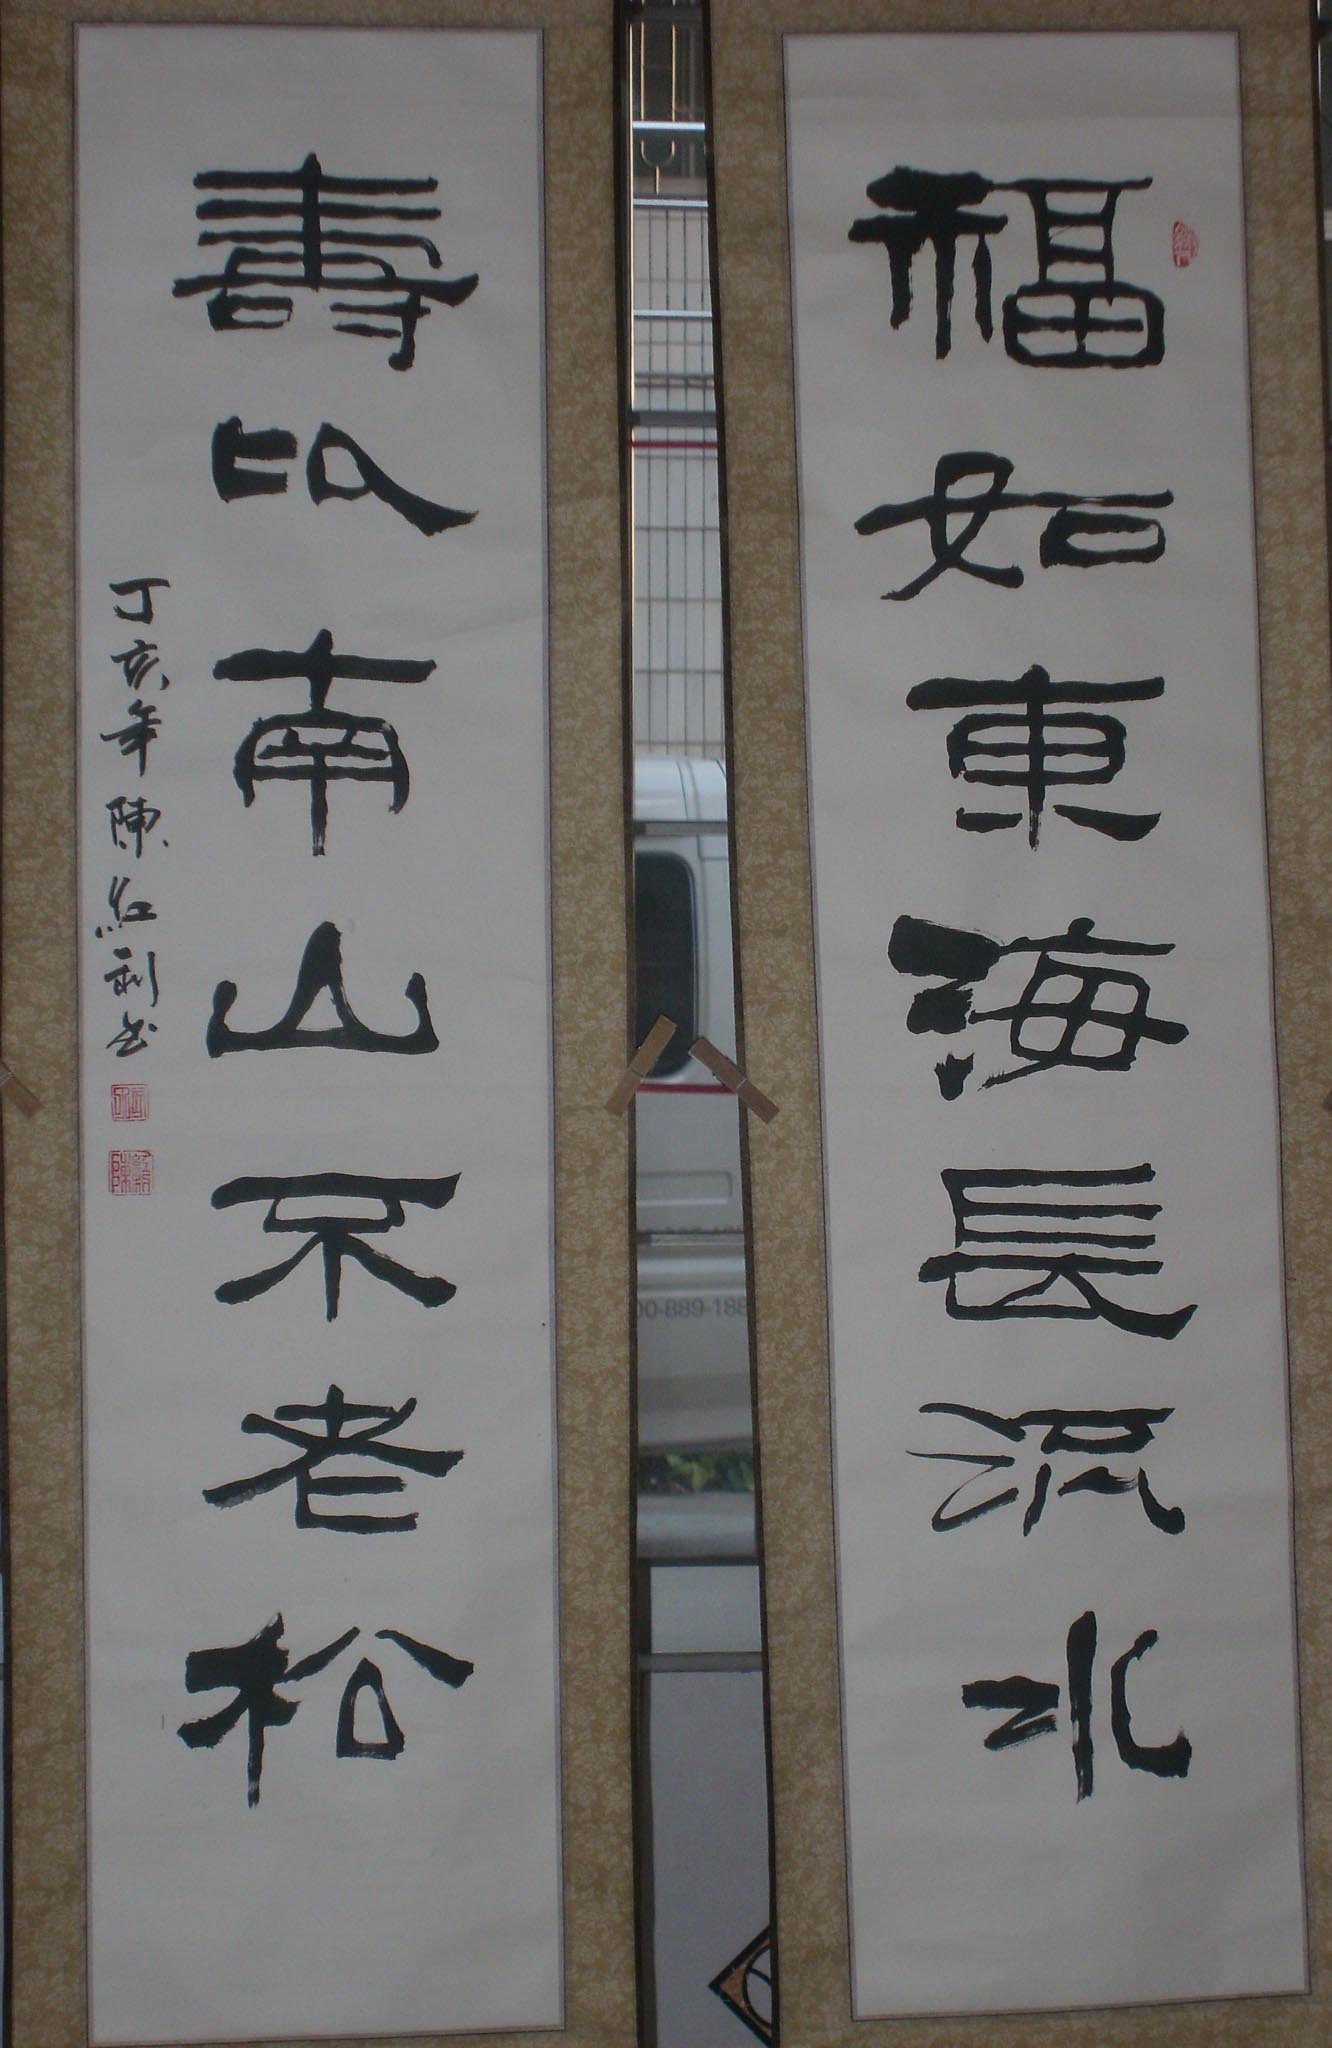 福如東海長流水
壽以南山不老松
丁亥年陳紅利书
00-889-188